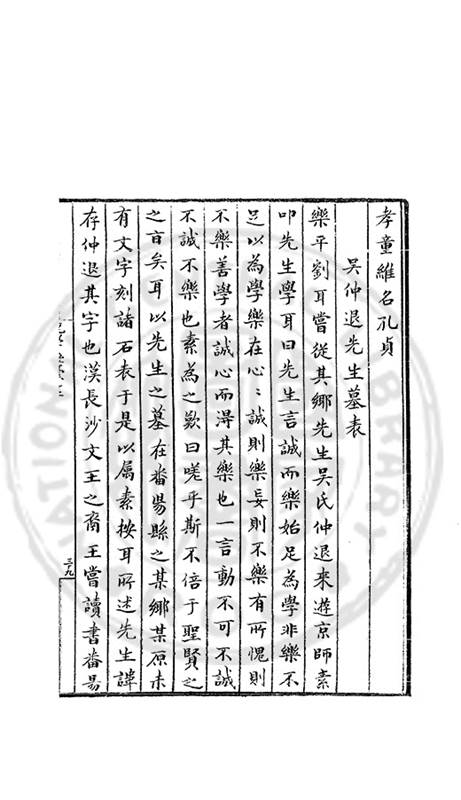 孝童維名孔貞
吳仲退先生墓表
樂平劉耳嘗從其鄉先生吳氏仲退來遊京師素
叩先生學耳曰先生言誠而樂始足為學非樂不
足以為學樂在心〻誠則樂妄則不樂有所愧則
不樂善學者誠心而得其樂也一言動不可不誠
不誠不樂也素為之歎曰嗟乎斯不倍于聖賢之
之言矣耳以先生之墓在番昜縣之某鄉某原未
有文字刻諸石表于是以屬素按耳所述先生諱
存仲退其字也漢長沙文王之裔王嘗讀書番昜
三九